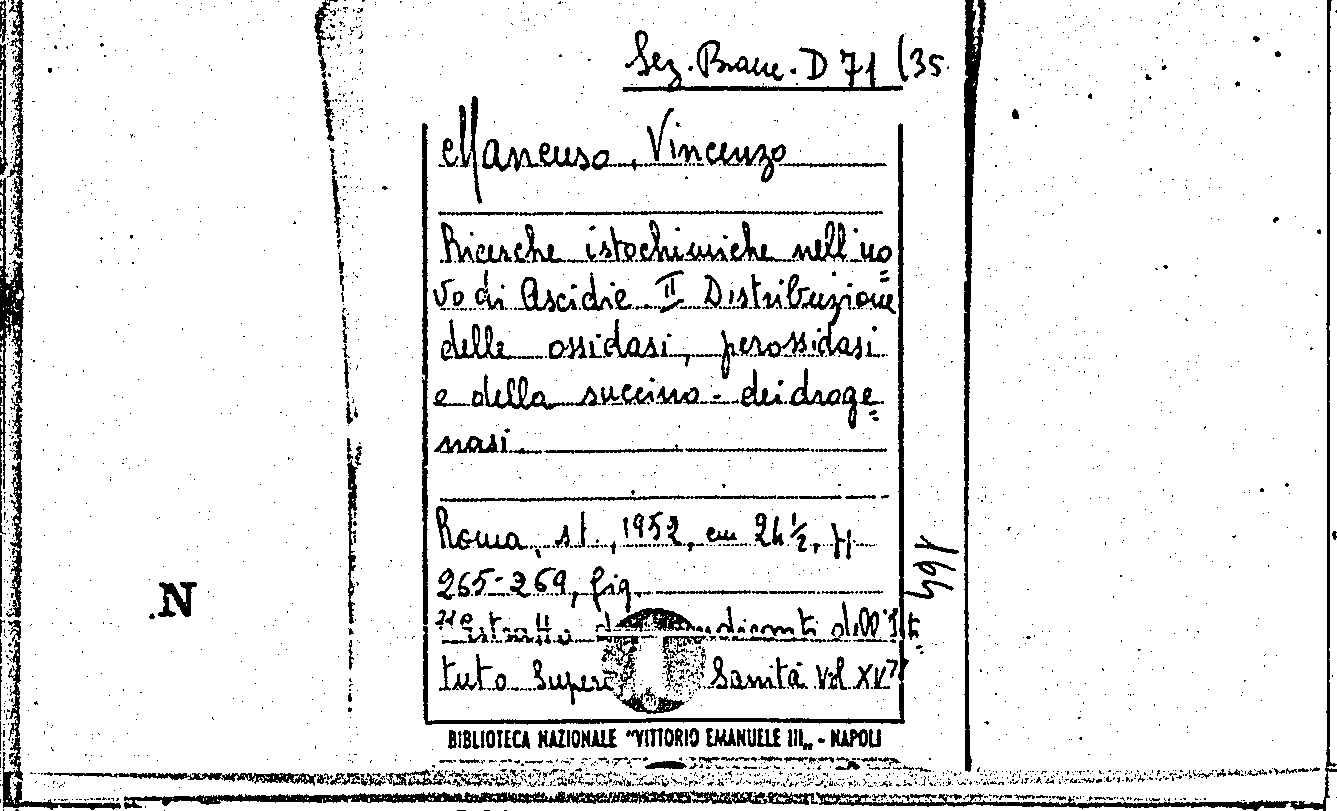 Sez. Branc. D 71 (35
Mancuso, Vincenzo
Ricerche istochimiche nell'uo=
vo di Ascidie. II Distribuzione
delle ossidasi, perossidasi
e della succino-deidroge=
nasi.
Roma, st., 1952, cm 24½, pp
265-269, fig.
Estratto dai Rendiconti dell'Isti=
tuto Super Sanità Vol XV"
164
.N
BIBLIOTECA NAZIONALE "VITTORIO EMANUELE III„ - NAPOLI